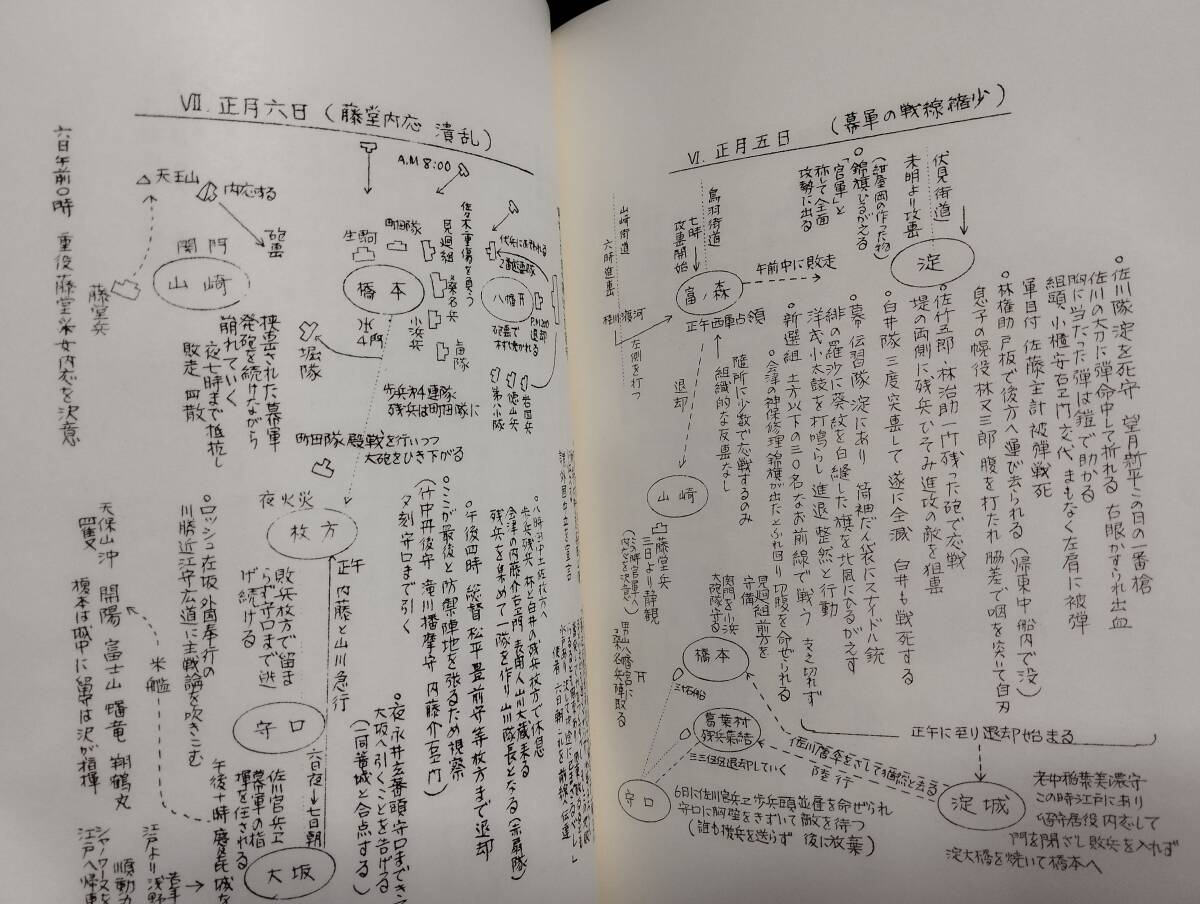 Ⅵ. 正月五日 (幕軍の戦線縮少)
伏見街道
未明より攻撃
淀
錦旗ひるがえる
「官軍」と
称して全面
攻勢に出る
鳥羽街道
七時
攻撃開始
山崎街道
六時進撃
富ノ森
午前中に敗走
桂川渡河
左側を打つ
正午西軍占領
退却
随所に少数で応戦するのみ
組織的な反撃なし
山崎
藤堂兵
三日より静観
佐川隊 淀を死守 望月新平この日の一番槍
佐川の大刀に弾命中して折れる 右眼かすられ出血
胸に当たった弾は鎧で助かる
組頭、小櫃安右ヱ門交代まもなく左肩に被弾
軍目付 佐藤主計 被弾戦死
林権助 戸板で後方へ運び去られる (帰東中船内で没)
息子の幌役林又三郎 腹を打たれ脇差で咽を突いて自刃
佐竹五郎、林治助 一門残った砲で応戦
堤の両側に残兵ひそみ進攻の敵を狙撃
白井隊 三度突撃して遂に全滅 白井も戦死する
幕 伝習隊 淀にあり 筒袖だん袋にスナイドル銃
緋の羅沙に葵紋を白縫した旗を北風にひるがえす
洋式小太鼓を打鳴らし進退整然と行動
新選組 土方以下の三〇名なお前線で戦う 支え切れず
会津の神保修理 錦旗が出たとふれ回り切腹を命ぜられる
見廻組前方を
守備
関門を小浜
大砲隊守る
男山八幡宮に
桑名兵陣取る
橋本
三十石船
葛葉村
残兵集結
三三伍伍退却していく
守口
正午に至り退却始まる
佐川唐傘をさして悠然と去る
陸行
淀城
老中稲葉美濃守
この時江戸にあり
留守居役内応して
門を閉ざし敗兵を入れず
淀大橋を焼いて橋本へ
6日に佐川官兵ヱ歩兵頭並役を命ぜられ
守口に胸壁をきずいて敵を待つ
(誰も援兵を送らず 後に放棄)
Ⅶ. 正月六日 (藤堂内応 潰乱)
六日午前〇時 重役藤堂采女内応を決意
天王山
内応する
砲撃
関門
山崎
藤堂兵
A.M 8:00
生駒
町田隊
橋本
水門
見廻組
佐々木重傷を負う
桑名兵
小浜兵
八幡
砲撃で
村が焼かれる
退却
岩国兵
徳山兵
第八小隊
堀隊
挟撃された幕軍
発砲を続けながら
崩れていく
夜七時まで抵抗し
敗走 四散
残兵は町田隊に
町田隊 殿戦を行いつつ
大砲をひき下がる
夜火災
枚方
正午
内藤と山川急行
敗兵枚方で留ま
らず守口まで逃
げ続ける
守口
六日夜→七日朝
八時頃
残兵枚方で休息
会津の内藤介右ヱ門 表用人山川大蔵来る
残兵を集めて一隊を作り山川隊長となる(赤肩隊)
午後四時 総督 松平豊前守等枚方まで退却
ここが最後と防禦陣地を張るため視察
(竹中丹後守 滝川播摩守 内藤介右ヱ門)
夕刻守口まで引く
夜 永井玄蕃頭守口まできて
大坂へ引くことを告げる
(同藩城と合点する)
ロッシュ在坂 外国奉行の
川勝近江守広道に主戦論を吹きこむ
天保山沖 開陽 富士山 蟠竜 翔鶴丸
榎本は城中に留守は沢が指揮
米艦
佐川官兵ヱ
幕軍の指
揮を任される
午後十時 慶喜城を
大坂
江戸より浅野
順動丸
江戸へ帰東